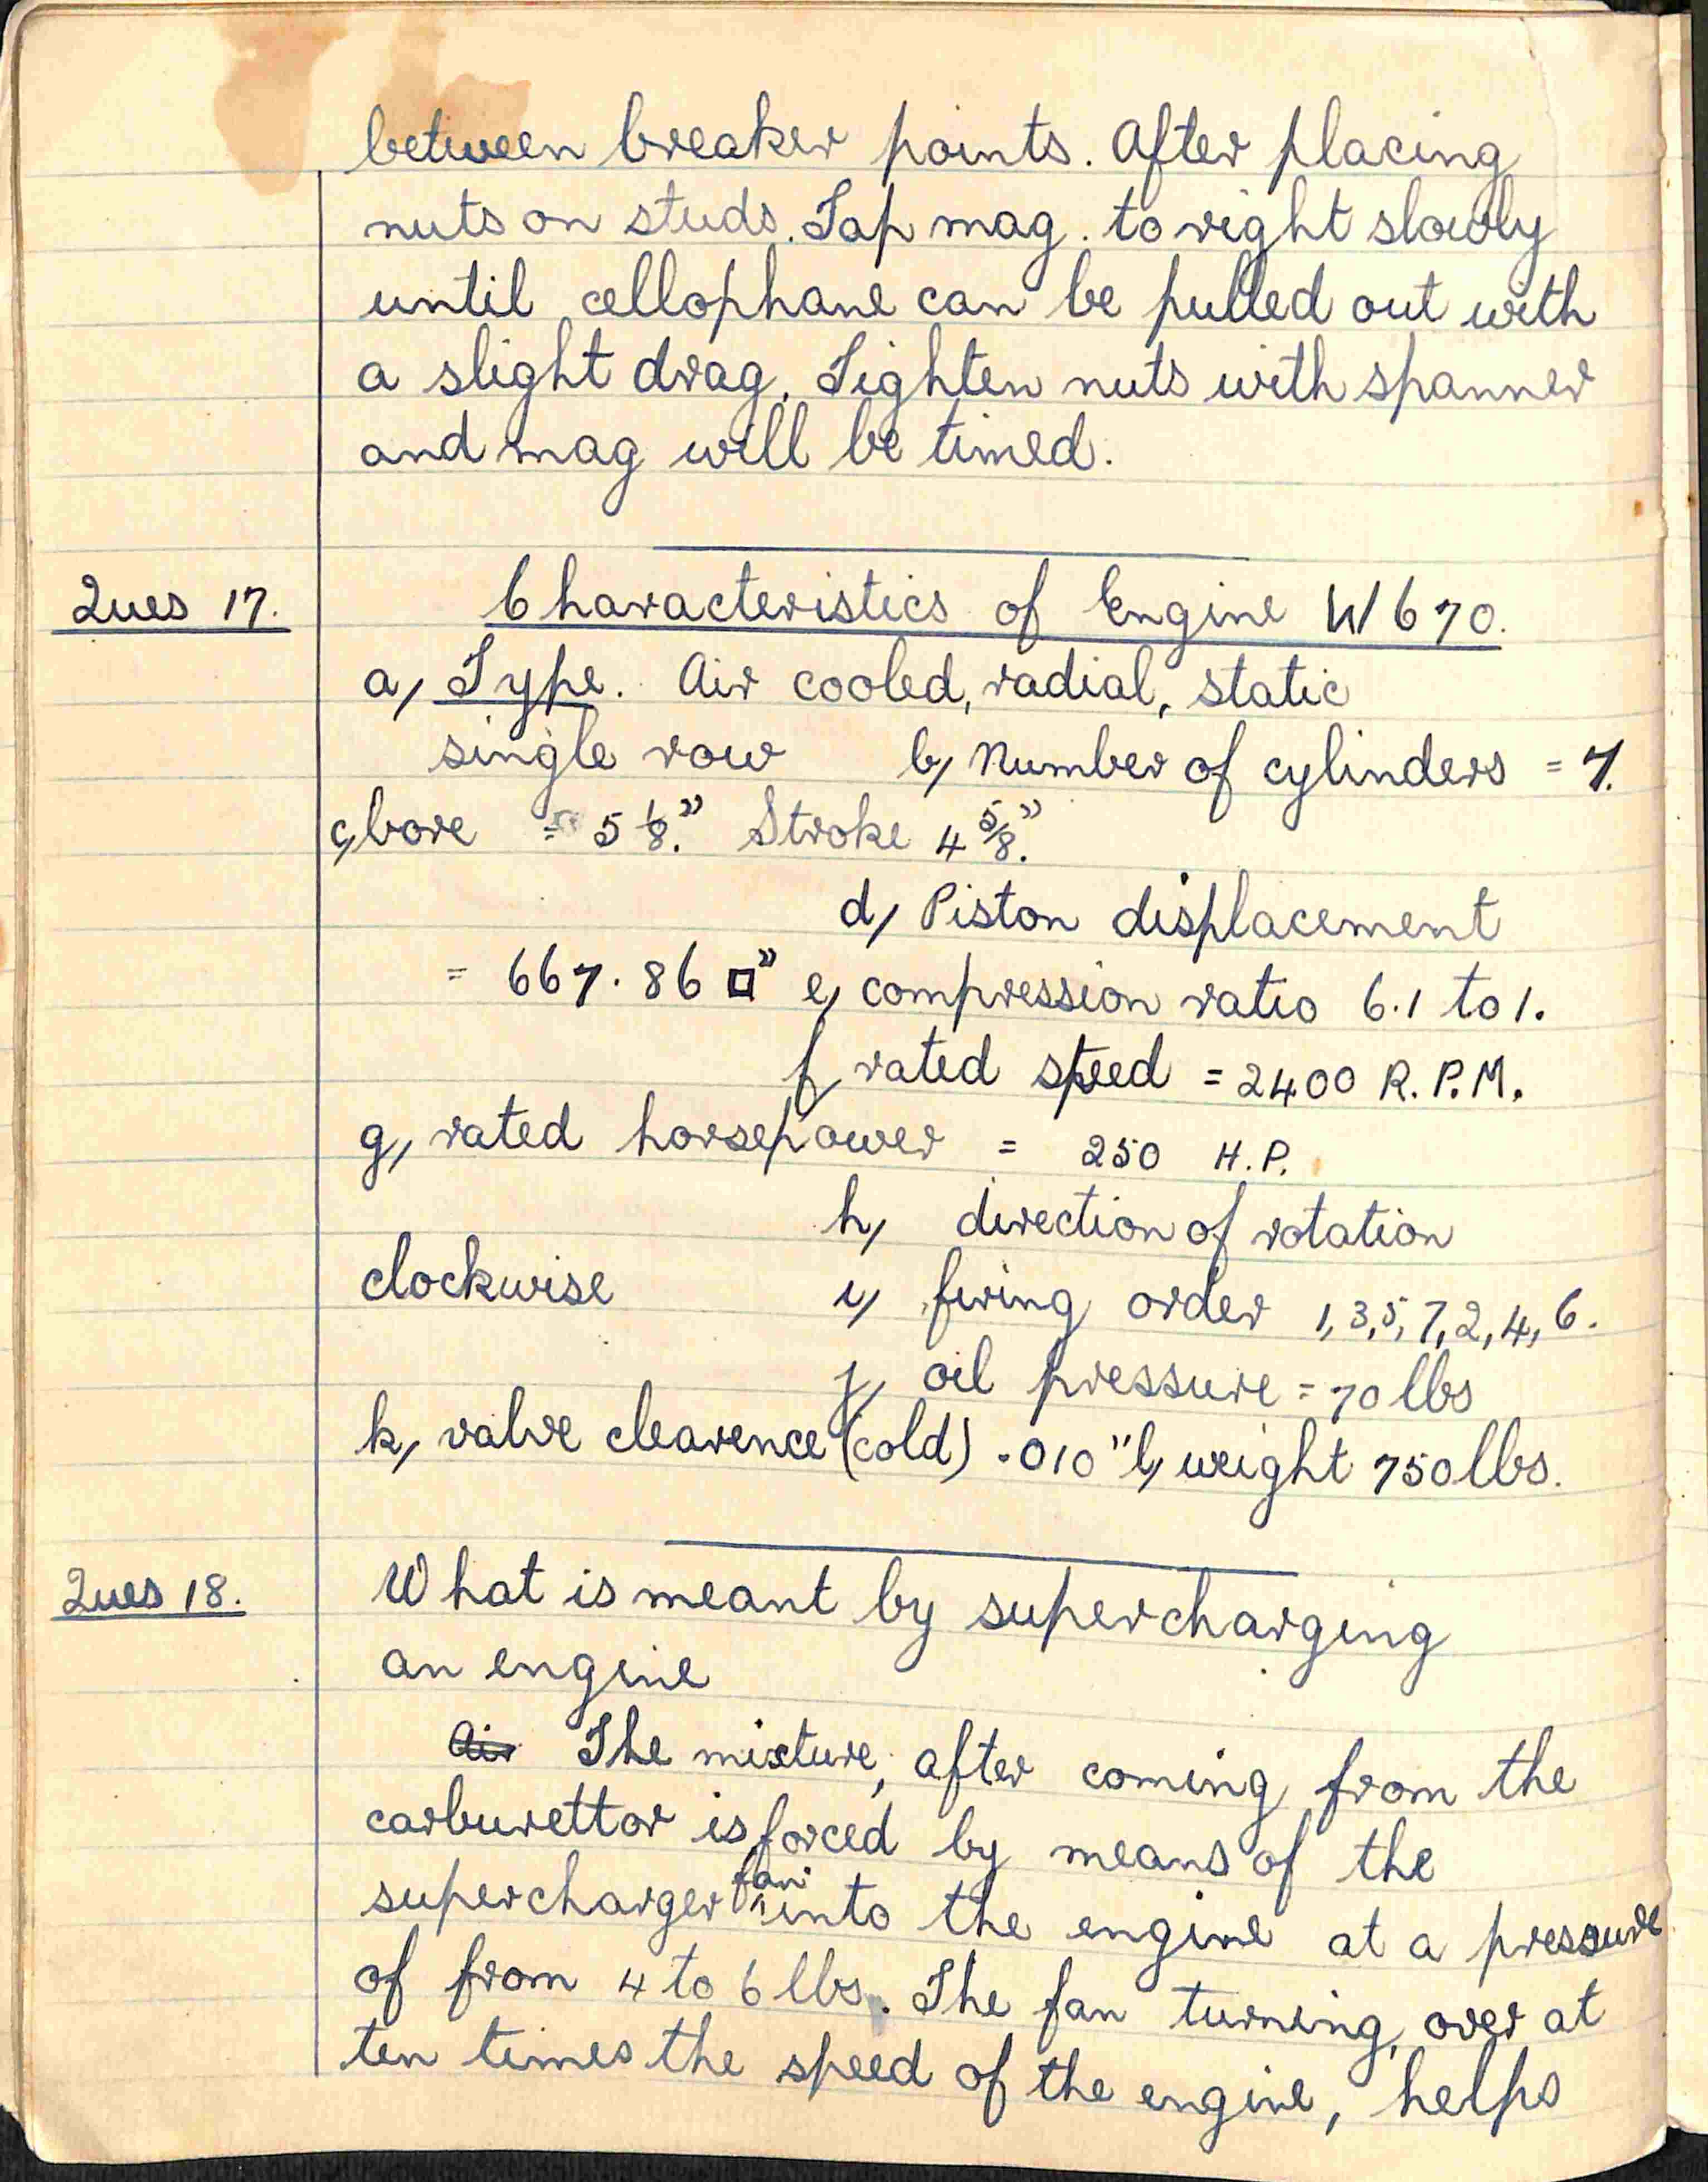 between breaker points. After placing
nuts on studs. Tap mag. to right slowly
until cellophane can be pulled out with
a slight drag. Tighten nuts with spanner
and mag will be timed.
Ques 17. Characteristics of Engine W670.
a, Type. Air cooled, radial, static
single row b, Number of cylinders = 7.
c, bore = 5 1/8." Stroke 4 5/8."
d, Piston displacement
= 667.86 □" e, compression ratio 6.1 to 1.
f, rated speed = 2400 R.P.M.
g, rated horsepower = 250 H.P.
h, direction of rotation
clockwise i, firing order 1,3,5,7,2,4,6.
j, oil pressure = 70 lbs
k, valve clearence (cold) .010" l, weight 750 lbs.
Ques 18. What is meant by supercharging
an engine
Air The mixture, after coming from the
carburettor is forced by means of the
supercharger fan into the engine at a pressure
of from 4 to 6 lbs. The fan turning over at
ten times the speed of the engine, helps